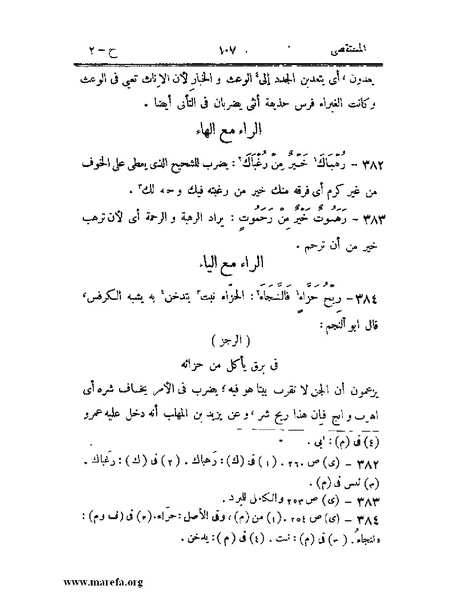 المستقصى ١٠٧ ح - ٢
يعدون ، أى يتعدين الجدد إلى الوعث و الخبار لأن الإناث تعي فى الوعث
وكانت الغبراء فرس حذيفة أنثى يضربان فى التأنى أيضا .
الراء مع الهاء
٣٨٢ - رُهْبَاكَ خَيْرٌ مِنْ رُغْبَاكَ : يضرب للشحيح الذى يعطى على الخوف
من غير كرم أى فرقه منك خير من رغبته فيك وحبه لك .
٣٨٣ - رَهَبُوتٌ خَيْرٌ مِنْ رَحَمُوتٍ : يراد الرهبة و الرحمة أى لأن ترهب
خير من أن ترحم .
الراء مع الياء
٣٨٤ - رِيْحُ حَزَّاءٍ فَالنَّجَاءَ : الحزاء نبت يتدخن به يشبه الكرفس،
قال ابو النجم :
( الرجز )
فى برق يأكل من حزائه
يزعمون أن الجن لا تقرب بيتا هو فيه ؛ يضرب فى الأمر يخاف شره أى
اهرب و انج فإن هذا ريح شر ، و عن يزيد بن المهلب أنه دخل عليه عمرو
(٤) فى (م) : ابى .
٣٨٢ - (ى) ص ٢٦٠ . (١) فى (ك) : رَهباك . (٢) فى (ك) : رَغباك .
(٣) ليس فى (م) .
٣٨٣ - (ى) ص ٢٥٣ والكامل للمبرد .
٣٨٤ - (ى) ص ٢٥٤ . (١) من (م) ، وفى الأصل : حزاء . (٢) فى (ف و م) :
فنجاءُ . (٣) فى (م) : نت . (٤) فى (م) : يدخن .
www.marefa.org